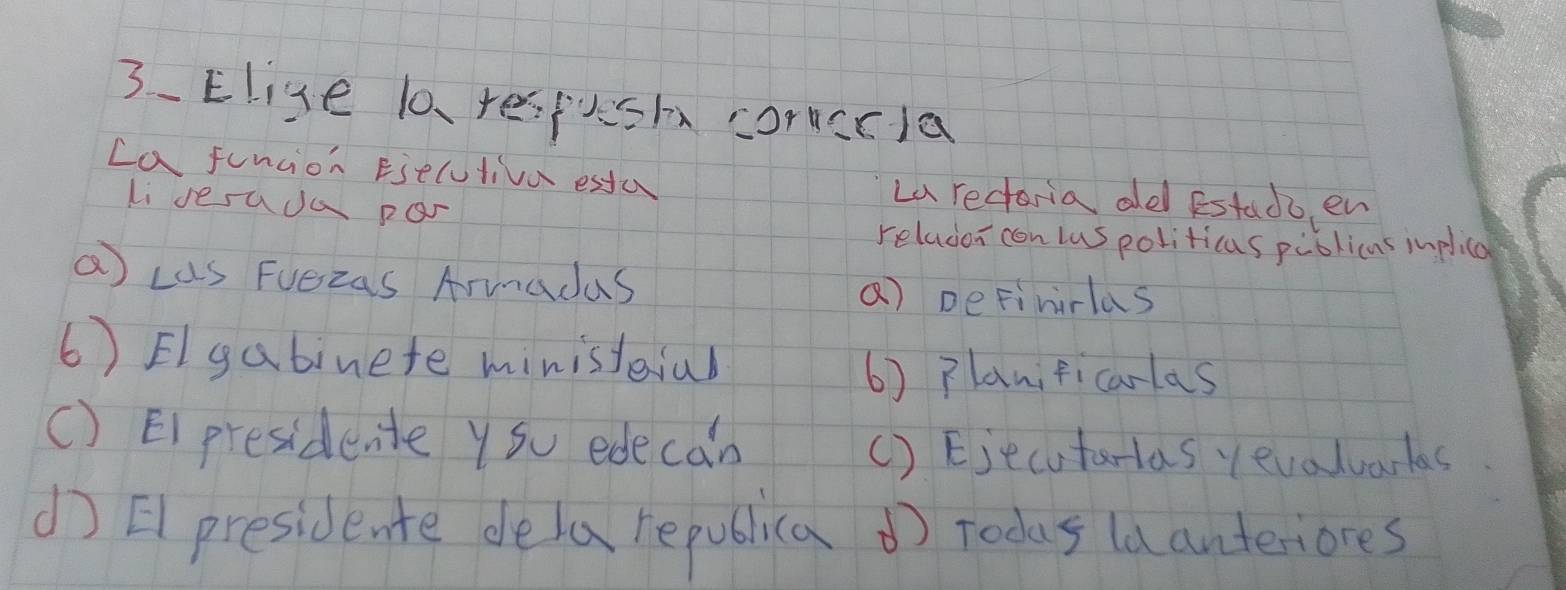 3- Elige la respuesta correcta
La función Ejecutiva esta
liderada por
a) Las Fuezas Armadas
b) El gabinete ministeial
c) El presidente y su edecán
d) El presidente dela republica
La rectoria del Estado, en
relación con las politicas publicas implica
a) Definirlas
b) Planificarlas
c) Ejecutarlas y evaluarlas.
d) Todas la anteriores